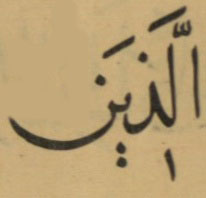 الَّذَينَ
١